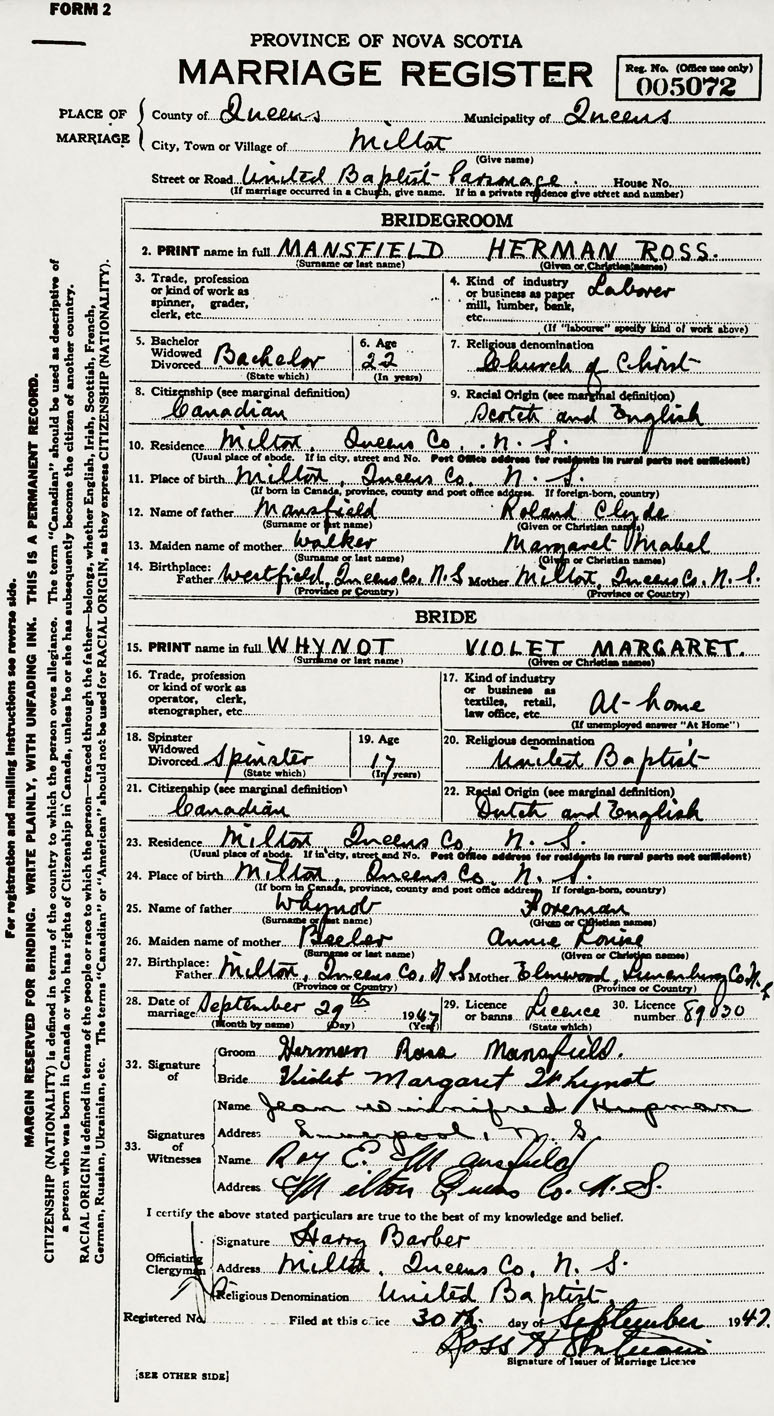 FORM 2
PROVINCE OF NOVA SCOTIA
MARRIAGE REGISTER
Reg. No. (Office use only)
005072
PLACE OF MARRIAGE
County of Queens Municipality of Queens
City, Town or Village of Milton
(Give name)
Street or Road United Baptist Parsonage. House No.
(If marriage occurred in a Church, give name. If in a private residence give street and number)
BRIDEGROOM
2. PRINT name in full MANSFIELD HERMAN ROSS.
(Surname or last name) (Given or Christian names)
3. Trade, profession or kind of work as spinner, grader, clerk, etc.
4. Kind of industry or business as paper mill, lumber, bank, etc. Laborer
(If "labourer" specify kind of work above)
5. Bachelor Widowed Divorced Bachelor
(State which)
6. Age 22
(In years)
7. Religious denomination
Church of Christ
8. Citizenship (see marginal definition)
Canadian
9. Racial Origin (see marginal definition)
Scotch and English
10. Residence Milton, Queens Co., N. S.
(Usual place of abode. If in city, street and No. Post Office address for residents in rural parts not sufficient)
11. Place of birth Milton, Queens Co. N. S.
(If born in Canada, province, county and post office address. If foreign-born, country)
12. Name of father Mansfield Roland Clyde
(Surname or last name) (Given or Christian names)
13. Maiden name of mother Walker Margaret Mabel
(Surname or last name) (Given or Christian names)
14. Birthplace: Father Westfield, Queens Co. N. S Mother Milton, Queens Co. N. S.
(Province or Country) (Province or Country)
BRIDE
15. PRINT name in full WHYNOT VIOLET MARGARET.
(Surname or last name) (Given or Christian names)
16. Trade, profession or kind of work as operator, clerk, stenographer, etc.
17. Kind of industry or business as textiles, retail, law office, etc. At-home
(If unemployed answer "At Home")
18. Spinster Widowed Divorced Spinster
(State which)
19. Age 17
(In years)
20. Religious denomination
United Baptist
21. Citizenship (see marginal definition)
Canadian
22. Racial Origin (see marginal definition)
Dutch and English
23. Residence Milton Queens Co., N. S.
(Usual place of abode. If in city, street and No. Post Office address for residents in rural parts not sufficient)
24. Place of birth Milton, Queens Co. N. S.
(If born in Canada, province, county and post office address. If foreign-born, country)
25. Name of father Whynot Foreman
(Surname or last name) (Given or Christian names)
26. Maiden name of mother Beeler Annie Louise
(Surname or last name) (Given or Christian names)
27. Birthplace: Father Milton, Queens Co, N. S Mother Elmwood, Lunenburg Co. N. S
(Province or Country) (Province or Country)
28. Date of marriage September 29th 1947
(Month by name) (Day) (Year)
29. Licence or banns Licence
(State which)
30. Licence number 89030
32. Signature of
Groom Herman Ross Mansfield.
Bride Violet Margaret Whynot
33. Signatures of Witnesses
Name Jean Winnifred Hupman
Address Liverpool, N. S
Name Roy E. Mansfield
Address Milton Queens Co. N. S.
I certify the above stated particulars are true to the best of my knowledge and belief.
Officiating Clergyman
Signature Harry Barber
Address Milton, Queens Co, N. S.
Religious Denomination United Baptist.
Registered No. Filed at this office 30th. day of September 1947.
Ross H
Signature of Issuer of Marriage Licence
[SEE OTHER SIDE]
For registration and mailing instructions see reverse side.
MARGIN RESERVED FOR BINDING. WRITE PLAINLY, WITH UNFADING INK. THIS IS A PERMANENT RECORD.
CITIZENSHIP (NATIONALITY) is defined in terms of the country to which the person owes allegiance. The term "Canadian" should be used as descriptive of
a person who was born in Canada or who has rights of Citizenship in Canada, unless he or she has subsequently become the citizen of another country.
RACIAL ORIGIN is defined in terms of the people or race to which the person—traced through the father—belongs, whether English, Irish, Scottish, French,
German, Russian, Ukrainian, etc. The terms "Canadian" or "American" should not be used for RACIAL ORIGIN, as they express CITIZENSHIP (NATIONALITY).